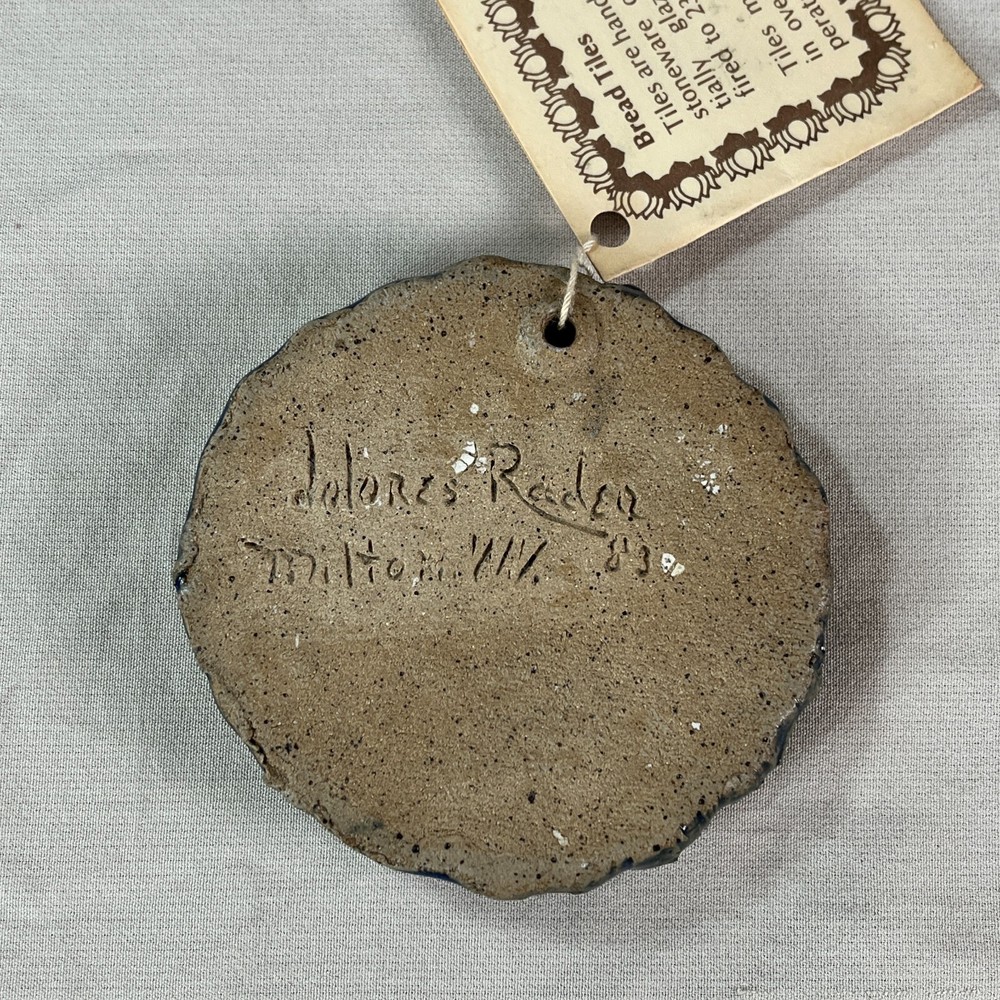 Bread Tiles
Tiles are hand
stoneware c
tially glaz
fired to 23
Tiles m
in ove
perat
dolores Raden
Milton. WV. 83